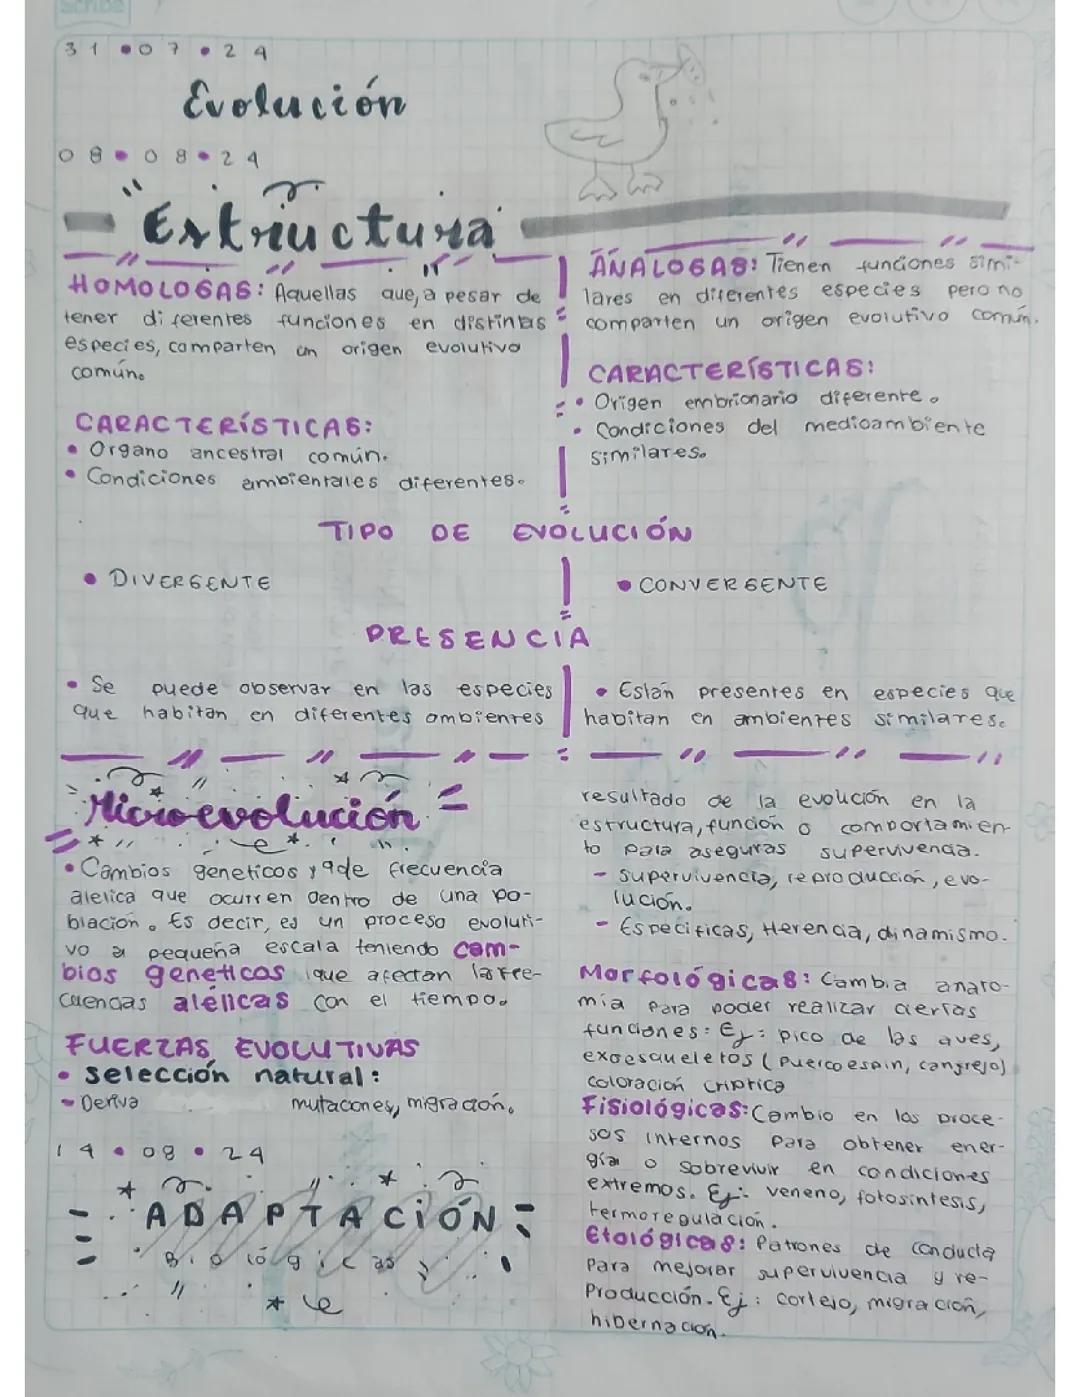 Scribe
31 • 07 • 24
Evolución
08 • 08 • 24
"Estructura"
HOMOLOGAS: Aquellas que, a pesar de
tener diferentes funciones en distintas
especies, comparten un origen evolutivo
común.
CARACTERÍSTICAS:
• Organo ancestral común.
• Condiciones ambientales diferentes.
ÁNALOGAS: Tienen funciones simi-
lares en diferentes especies pero no
comparten un origen evolutivo común.
CARACTERÍSTICAS:
• Origen embrionario diferente.
• Condiciones del medioambiente
similares.
TIPO DE EVOLUCIÓN
• DIVERGENTE
• CONVERGENTE
PRESENCIA
• Se puede observar en las especies
que habitan en diferentes ambientes
• Están presentes en especies que
habitan en ambientes similares.
Microevolución
• Cambios geneticos y de frecuencia
alelica que ocurren dentro de una po-
blacion. Es decir, es un proceso evoluti-
vo a pequeña escala teniendo cam-
bios geneticos que afectan la fre-
cuencias alélicas con el tiempo.
FUERZAS EVOLUTIVAS
• selección natural:
- Deriva mutacones, migración.
14 • 08 • 24
ADAPTACIÓN
Biológicas
resultado de la evolución en la
estructura, función o comportamien-
to para aseguras supervivencia.
- Supervivencia, reproducción, evo-
lución.
- Especificas, Herencia, dinamismo.
Morfológicas: Cambia anato-
mía para poder realizar ciertas
funciones: Ej: pico de las aves,
exoesqueletos (puercoespin, cangrejo)
coloración criptica
Fisiológicas: Cambio en los proce-
sos internos para obtener ener-
gía o sobrevivir en condiciones
extremos. Ej: veneno, fotosintesis,
termoregulación.
Etológicas: Patrones de conducta
para mejorar supervivencia y re-
Producción. Ej: cortejo, migración,
hibernacion.